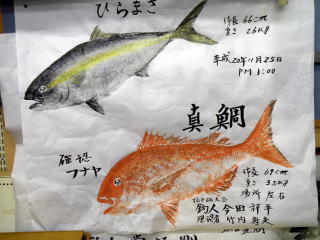 ひらまさ
体長 66cm
重さ 2.6Kg
平成20年11月25日
PM 1:00
真鯛
確認
フナヤ
体長 69cm
重さ 3.2Kg
場所 左右
釣人 今田 祥平
現認者 竹内